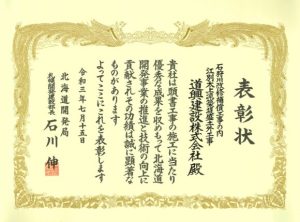 表彰状
石狩川改修補償工事の内
道興建設株式会社 殿
貴社は頭書工事の施工に当たり
優秀な成果を収めもって北海道
開発事業の推進と技術の向上に
貢献されその功績は誠に顕著な
ものがあります
よってここにこれを表彰します
令和三年七月十五日
北海道開発局
札幌開発建設部長 石川 伸